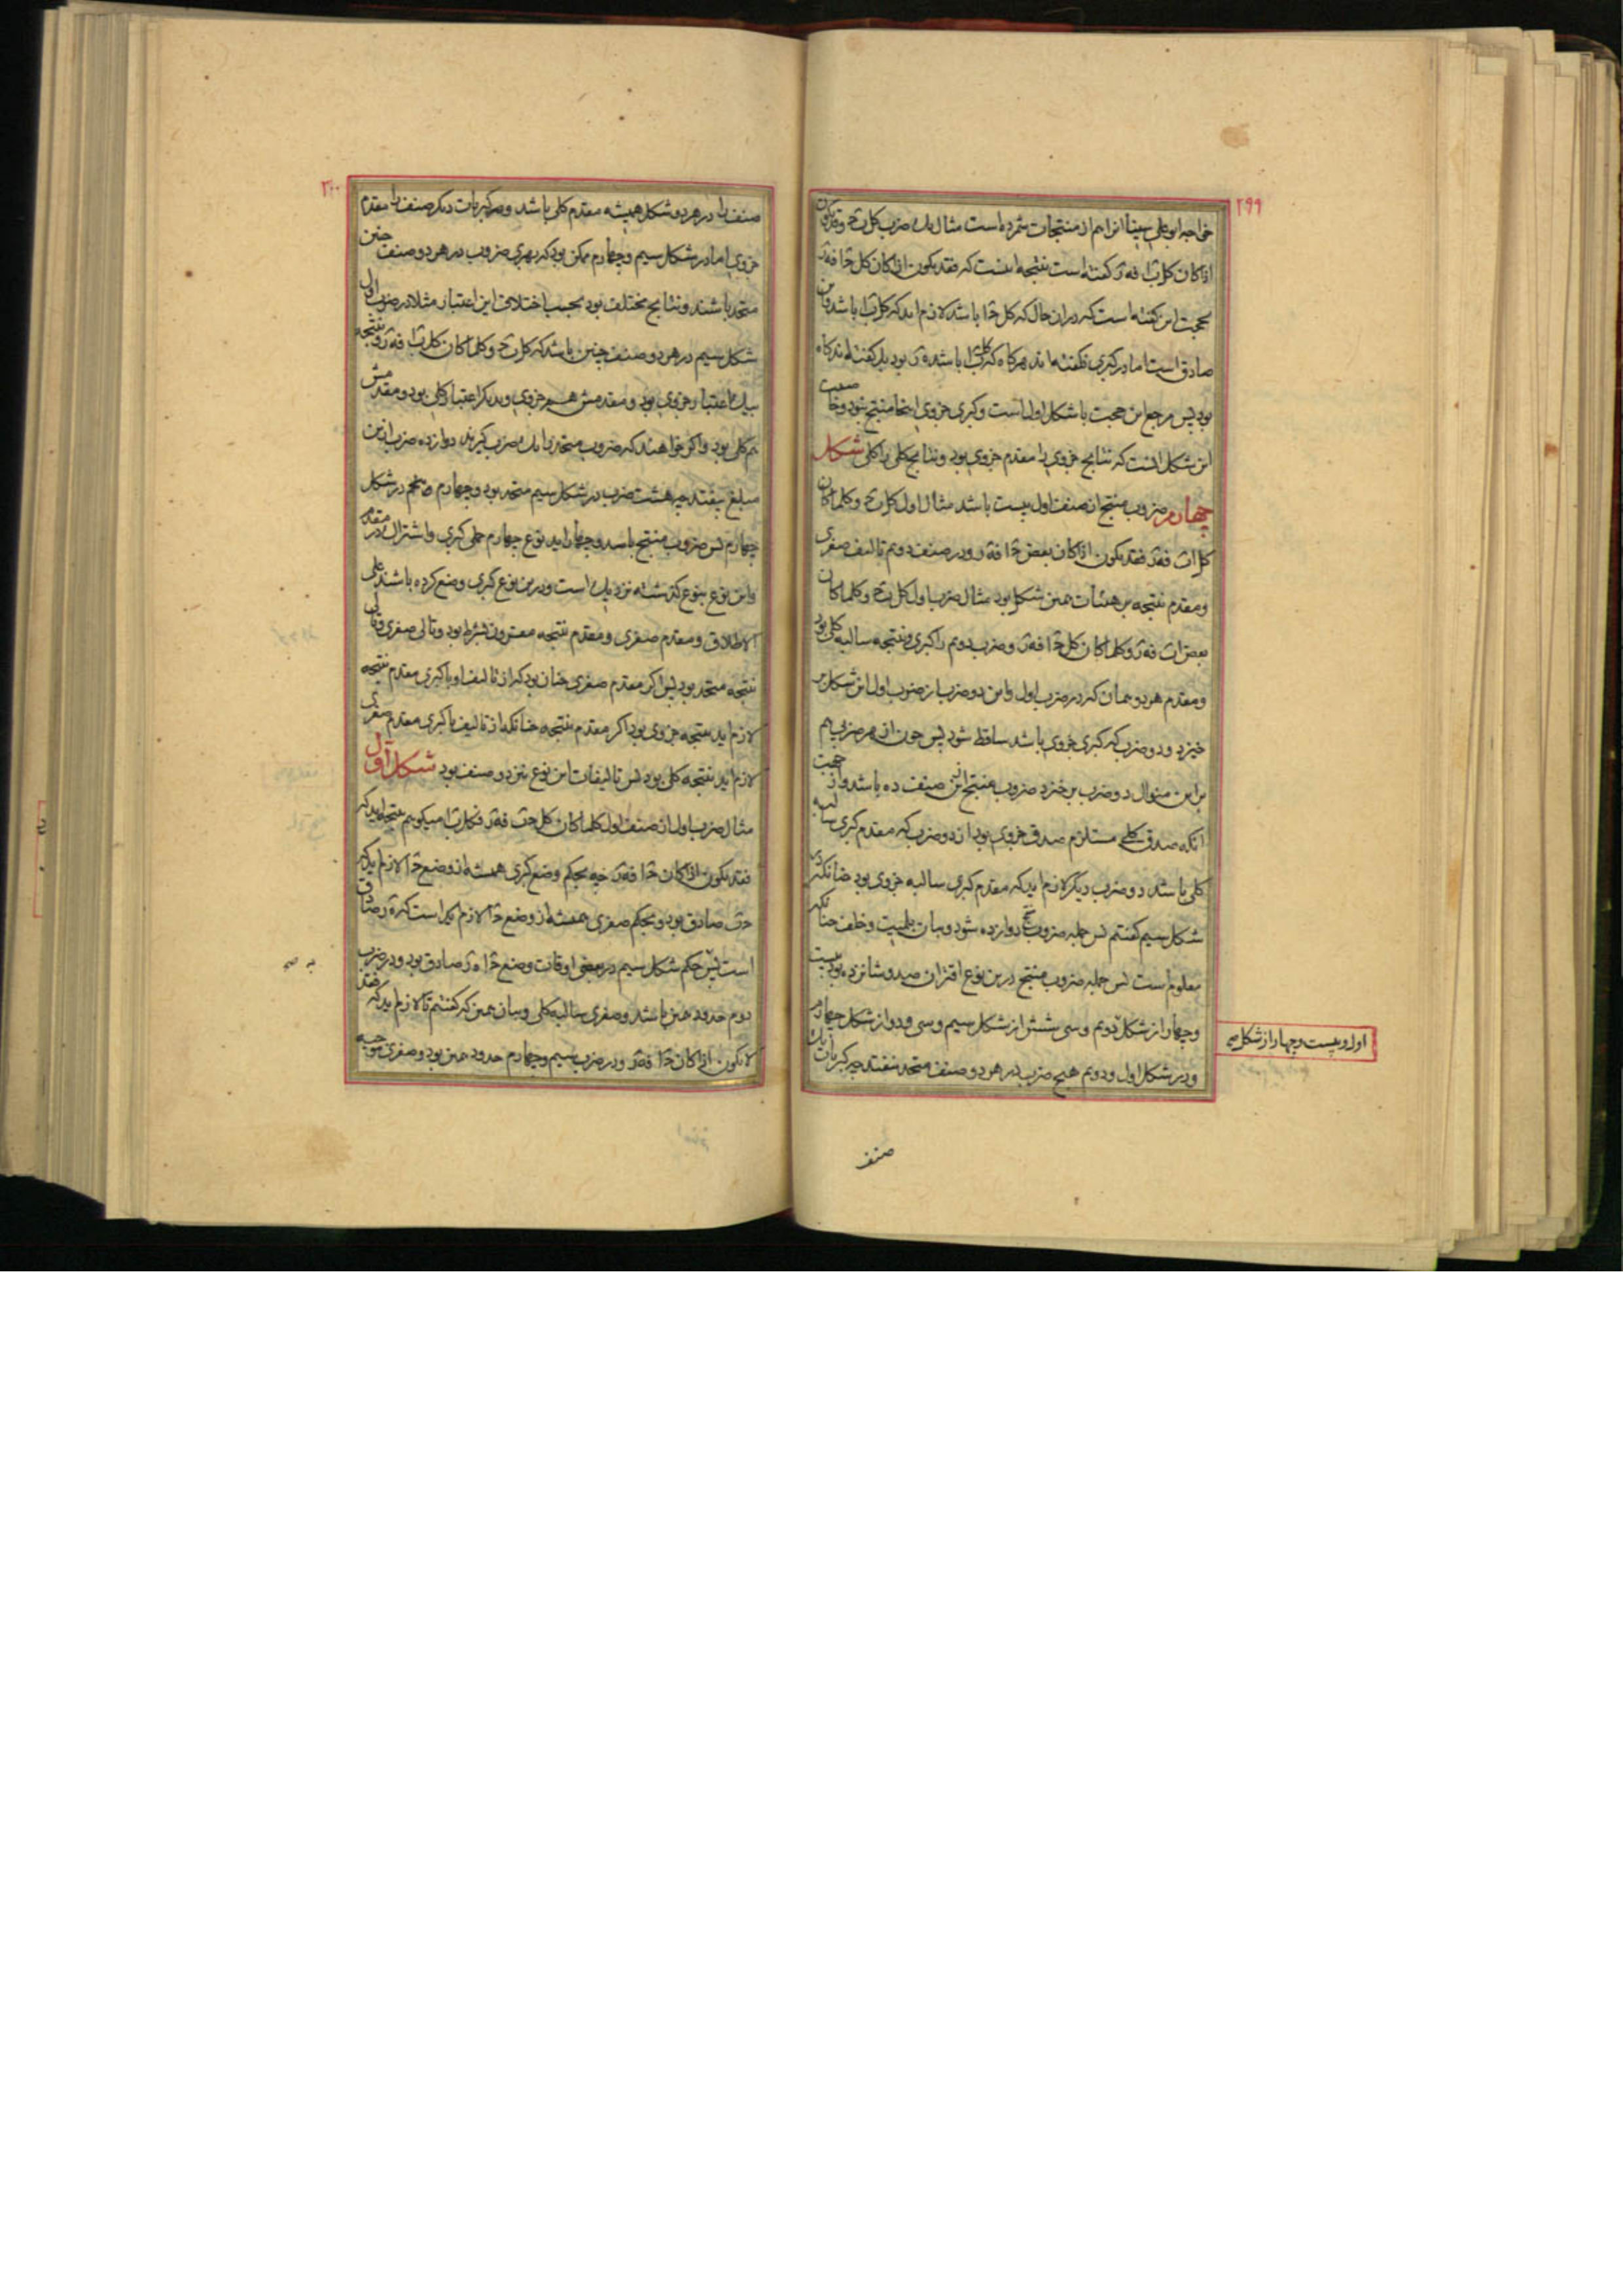 ۲۹۹
خواجه ابو علی سینا انرا هم از منتجات شمرده است مثال یک ضرب کل بج وقد یکون
اذا کان کل با فه‌ر گفته است نتیجه اینست که فقد یکون اذا کان کل جا فه‌ر
بحجت این گفته است که در ان حال که کل جا باشد لازم اید که کل با باشد و این
صادق است اما در کبری نگفته اند هرگاه که کل با باشد ه‌ر بود بل گفته اند گاه
بود پس مرجع این حجت با شکل اول است و کبری جزوی اینجا منتج نبود و خاصیت
این شکل انست که نتایج جزوی را مقدم جزوی بود و نتایج کلی را کلی شکل
چهارم ضروب منتج از صنف اول بیست باشد مثال اول کل بج و کلما کان
کل اب فه‌ر فقد یکون اذا کان بعض جا فه‌ر و در صنف دوم تالیف صغری
و مقدم نتیجه بر هیئات همین شکل بود مثال ضرب اول کل بج و کلما کان
بعض اب فه‌ر و کلما کان کل جا فه‌ر و ضرب دوم را کبری و نتیجه سالبه کلی بود
و مقدم هر دو همان که در ضرب اول و این دو ضرب از ضرب اول این شکل بر
خیزد و دو ضرب که کبری جزوی باشد ساقط شود پس چون از هر ضربی هم
بر این منوال دو ضرب بر خیزد ضروب منتج ازین صنف ده باشد و از جهت
انکه صدق کلی مستلزم صدق جزوی بود از دو ضرب که مقدم کبری سالبه
کلی باشد دو ضرب دیگر لازم اید که مقدم کبری سالبه جزوی بود چنانکه در
شکل سیم گفتیم پس جمله ضروب منتج دوازده شود و بیان بلمیت و خلف چنانکه
معلوم است پس جمله ضروب منتج درین نوع اقتران صد و شانزده بود بیست
و چهار از شکل دوم و سی شش از شکل سیم و سی و دو از شکل چهارم
و در شکل اول و دوم هیچ ضرب در هر دو صنف متحد نیفتد چه کبریات یک
اول و بیست و چهار از شکل صح
صنف
۳۰۰
صنف را در هر دو شکل همیشه مقدم کلی باشد و صغریات دیگر صنف را مقدم
جزوی اما در شکل سیم و چهارم ممکن بود که بهری ضروب در هر دو صنف چنین
متحد باشند و نتایج مختلف بود بحسب اختلاف این اعتبار مثلا در ضرب اول
شکل سیم در هر دو صنف چنین باشد که کل بج و کلما کان کل با فه‌ر و نتیجه
بیک اعتبار جزوی بود و مقدمش هم جزوی و بدیگر اعتبار کلی بود و مقدمش
هم کلی بود و اگر خواهند که ضروب متحد را یک ضرب گیرند دوازده ضرب ازین
مبلغ بیفتد چه هشت ضرب در شکل سیم متحد بود و چهارم و پنجم در شکل
چهارم پس ضروب منتج باشد و چهار اید نوع چهارم حملی کبری و اشتراک در مقدم
و این نوع بنوع گذشته نزدیک است و درین نوع کبری وضع کرده باشند علی
الاطلاق و مقدم صغری و مقدم نتیجه مقترن بشرط بود و تالی صغری و تالی
نتیجه متحد بود پس اگر مقدم صغری چنان بود که از تالیف او با کبری مقدم نتیجه
لازم اید نتیجه جزوی بود و اگر مقدم نتیجه چنانکه از تالیف با کبری مقدم صغری
لازم اید نتیجه کلی بود پس تالیفات این نوع نیز دو صنف بود شکل اول
مثال ضرب اول از صنف اول کلما کان کل جب فه‌ر فکل با میگوییم نتیجه اید که
فقد یکون اذا کان جا فه‌ر چه بحکم وضع کبری همیشه از وضع جا لازم اید که
جب صادق بود و بحکم صغری همیشه از وضع جا لازم اید است که ه‌ر صادق
است پس بحکم شکل سیم در بعضی اوقات وضع جا ه‌ر صادق بود و در ضرب
دوم حدود همین باشد و صغری سالبه کلی و بیان همین که گفتیم تا لازم اید که فقد
لا یکون اذا کان جا فه‌ر و در ضرب سیم و چهارم حدود همین بود و صغری موجبه
به صح